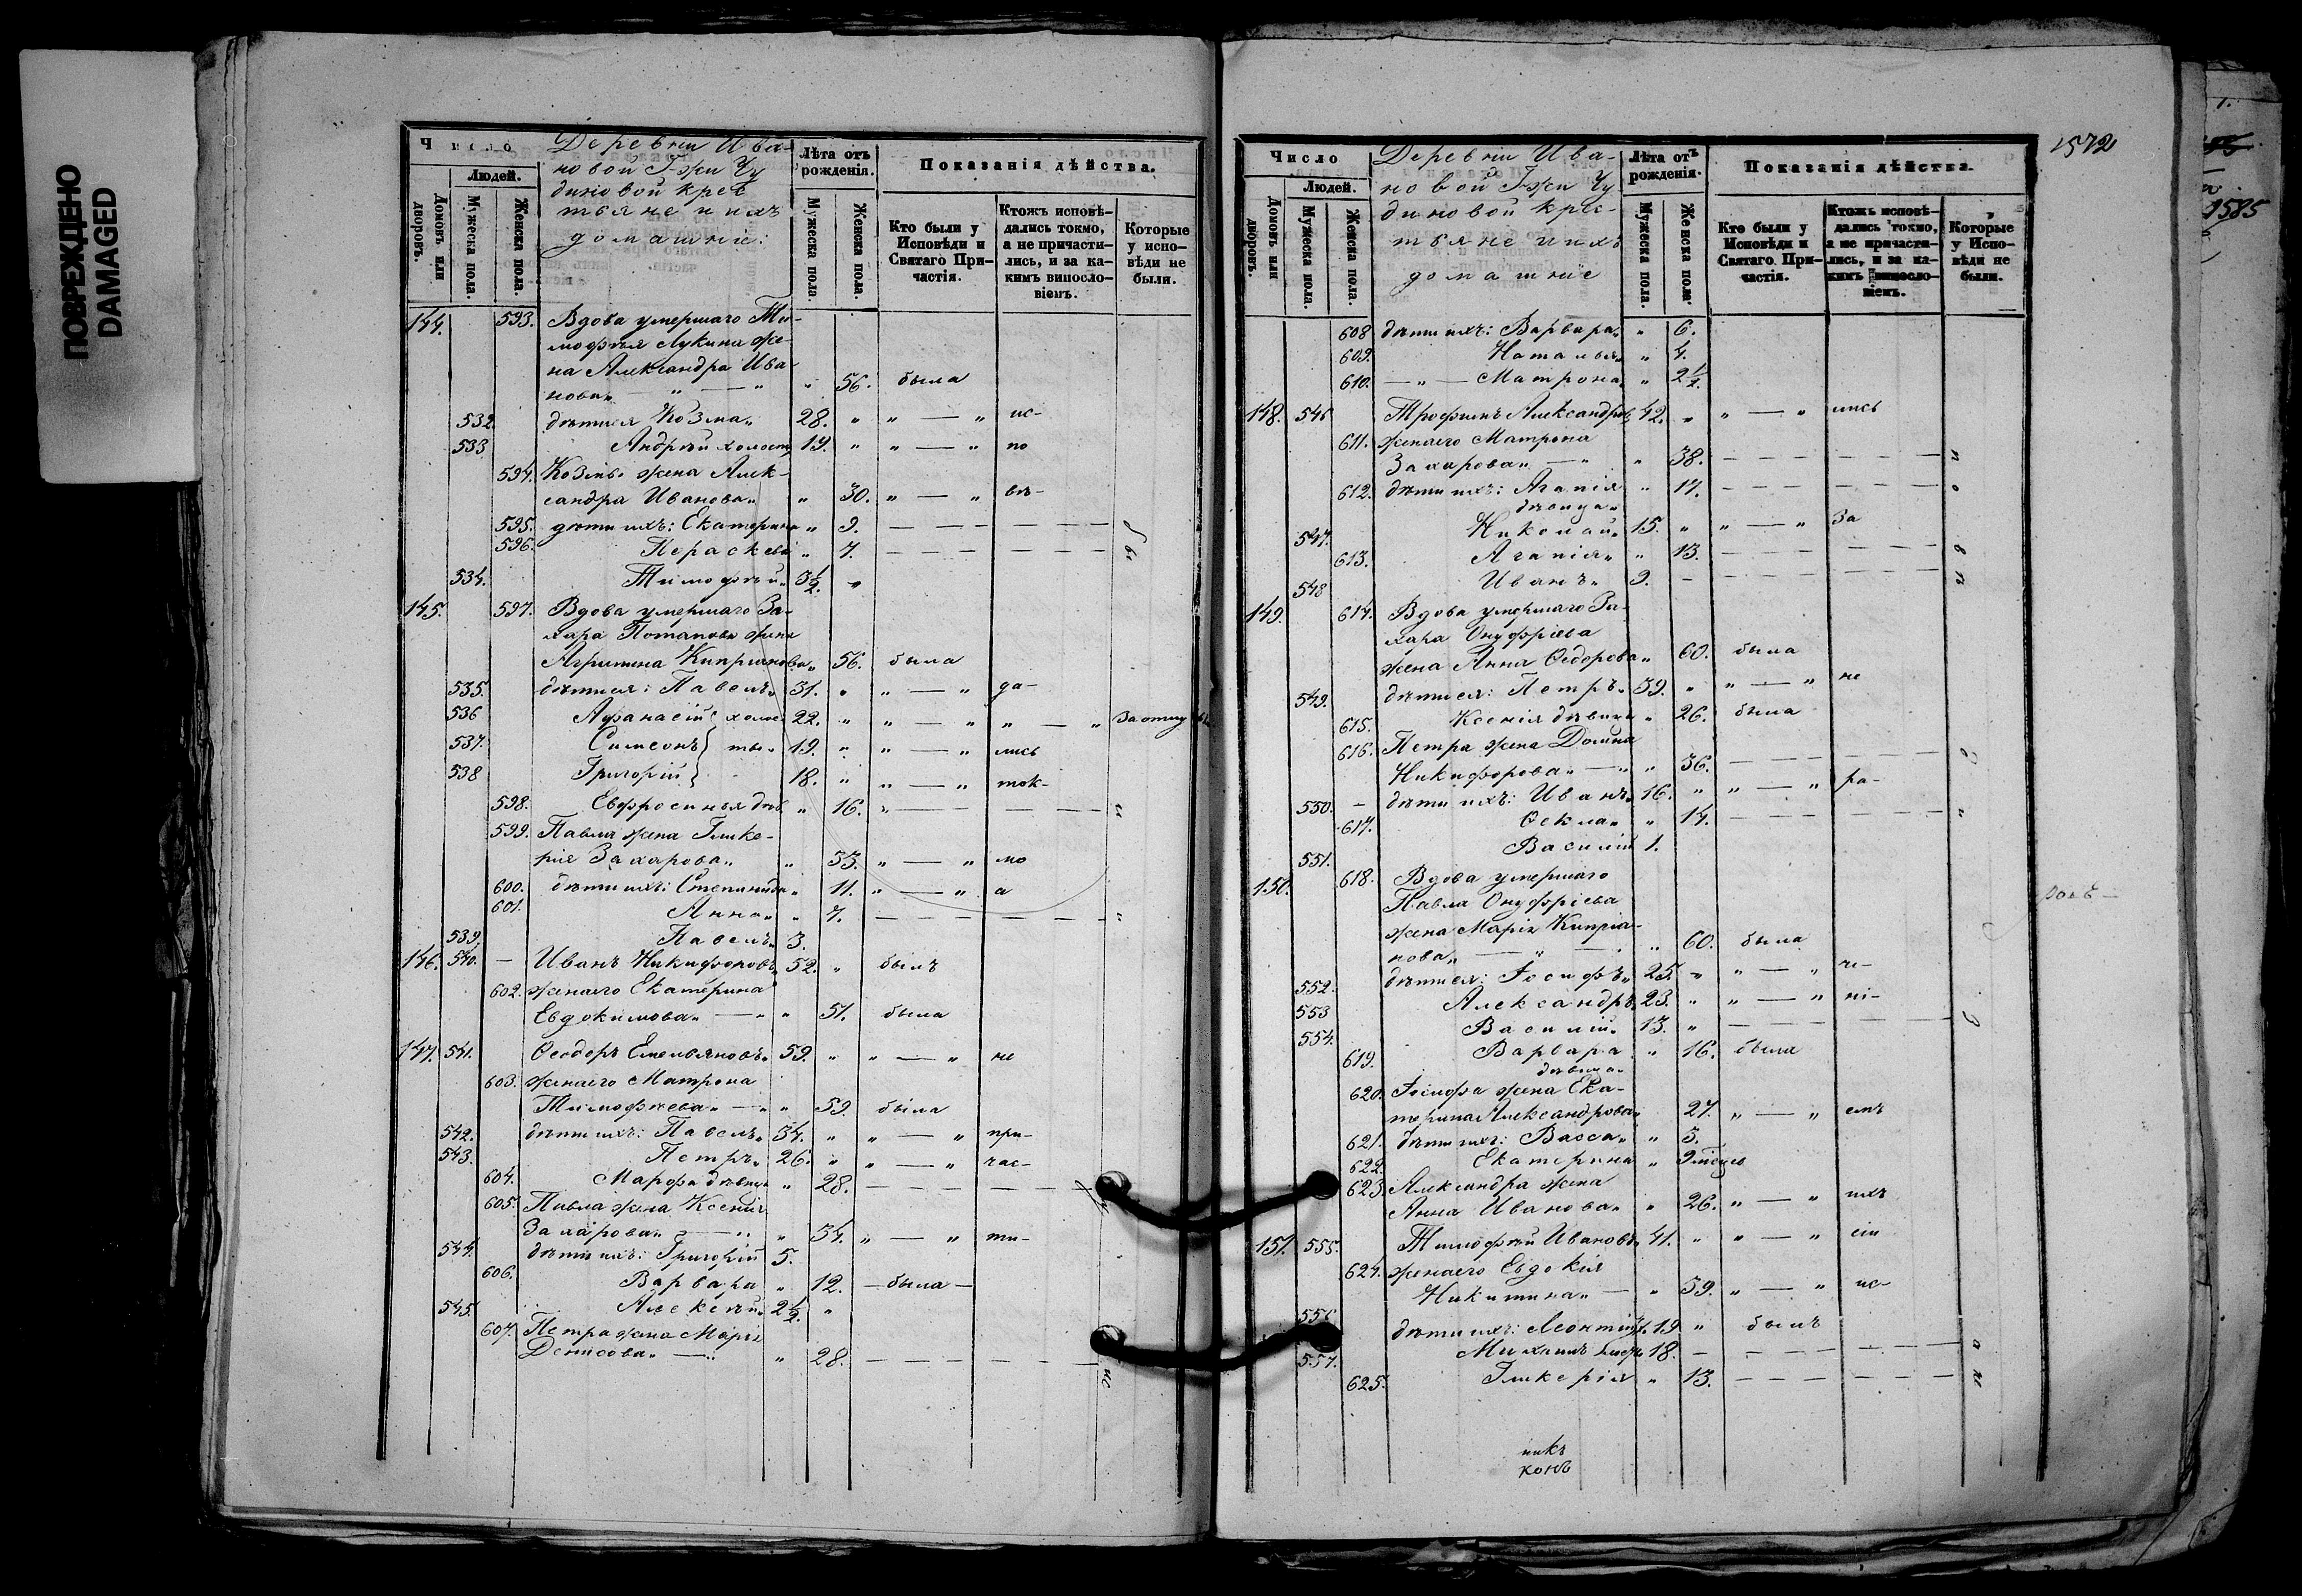 ПОВРЕЖДЕНО
DAMAGED
Число
Людей.
Домовъ или дворовъ.
Мужеска пола.
Женска пола.
Деревни Ива-
новой Г-жи Чу
диновой крес
тьяне и ихъ
домашніе:
Лѣта отъ рожденія.
Мужеска пола.
Женска пола.
Показанія дѣйства.
Кто были у Исповѣди и Святаго При-частія.
Ктожъ исповѣ-дались токмо, а не причасти-лись, и за ка-кимъ винослo-віемъ.
Которые у испо-вѣди не были.
144. 593. Вдова умершаго Ти-
мофѣя Лукина же-
на Александра Ива-
нова „ — „ „ 56. была
532. дѣти ея Козма „ 28. „ „ — „ ис-
533 Андрей холост 19. „ „ — „ по
594. Козмы жена Алек-
сандра Иванова „ „ 30. „ — „ вѣ-
595. дѣти ихъ: Екатерина „ 9. — — — — — —
596. Параскева „ 7. — — — — — — бы
534. Тимофей „ 3 1/2. „
145. 597. Вдова умершаго За-
хара Потапова жена
Агрипина Кипріанова „ 56. была
535. дѣти ея: Павелъ „ 31. „ „ — „ да-
536 Афанасій холос 22. „ „ — „ „ — „ За отлу
537. Симеонъ ты „ 19. „ „ — „ лись
538 Григорій 18. „ „ — „ ток-
598. Евфросинья дѣв „ 16. „ — — — — —
599. Павла жена Глике-
рія Захарова „ „ 33. „ — „ мо
600. дѣти ихъ: Степанида „ 11. „ — „ а
601. Анна „ „ 7. — — — — — — „
539. Павелъ „ 3.
146. 540. — Иванъ Никифоровъ „ 52. „ былъ
602. жена его Екатерина
Евдокимова „ — „ „ 51. была
147. 541. Ѳеодоръ Емельяновъ „ 59. „ „ — „ не
603. жена его Матрона
Тимофеева „ — „ „ 59. была
542. дѣти ихъ: Павелъ „ 34. „ „ — „ при-
543. Петръ „ 26. „ „ — „ час-
604. Марфа дѣвица „ 28. — — — — — —
605. Павла жена Ксенія
Захарова „ — „ „ 34. „ — „ ти-
544. дѣти ихъ: Григорій 5.
606. Варвара „ 12. — была —
545. Алексѣй „ 2 1/2. „
607. Петра жена Марія
Денисова „ — „ „ 28. — — — — — — ис
1572
1585
Число
Людей.
Домовъ или дворовъ.
Мужеска пола.
Женска пола.
Деревни Ива-
новой Г-жи Чу-
диновой крес-
тьяне и ихъ
домашніе
Лѣта отъ рожденія.
Мужеска пола.
Женска пола.
Показанія дѣйства.
Кто были у Исповѣди и Святаго При-частія.
Ктожъ исповѣ-дались токмо, а не причасти-лись, и за ка-кимъ винослo-віемъ.
Которые у Испо-вѣди не были.
608 дѣти ихъ: Варвара „ „ 6.
609. Наталья „ „ 4.
610. — „ — Матрона „ „ 2 1/2.
148. 546 Трофимъ Александровъ 42. „ „ — „ лись
611. жена его Матрона
Захарова „ — „ „ 38. — — — — — — п
612. дѣти ихъ: Агапія „ 17. — — — — — — о
дѣвица „
547. Николай „ 15. „ „ — „ за
613. Агапія „ „ 13. — — — — — — в
548 Иванъ „ 9. — — — — — — —
149. 614. Вдова умершаго За-
хара Онуфріева
жена Анна Ѳедорова „ 60. была
549. дѣти ея: Петръ „ 39. „ „ — „ не
615. Ксенія дѣвица „ 26. была
616. Петра жена Домна
Никифорова „ — „ „ 36. — — — — — —
550. — дѣти ихъ: Иванъ „ 16. „ „ — „ ра-
617. Ѳекла „ „ 14. — — — — — — „
551. Василій 1.
150. 618. Вдова умершаго
Павла Онуфріева
жена Марія Кипріа-
нова „ — „ — „ 60. была
552. дѣти ея: Іосифъ „ 25. „ „ — „ че-
553 Александръ 23. „ „ — „ ні-
554. Василій „ 13. „ — — — — — з
619. Варвара „ 16. была
дѣвица
620. Іосифа жена Ека-
терина Александрова „ 27. „ — „ емъ
621. дѣти ихъ: Васса „ „ 3.
622. Екатерина „ 9 мѣсецъ
623. Александра жена
Анна Иванова „ „ 26. „ — „ ихъ
151. 555. Тимофѣй Ивановъ „ 41. „ „ — „
624. жена его Евдокія
Никитина „ — „ 39. „ — „ ис-
556 дѣти ихъ: Леонтій 19 „ былъ
557. Михаилъ 18. — — — — — — —
625. Гликерія „ 13. — — — — — —